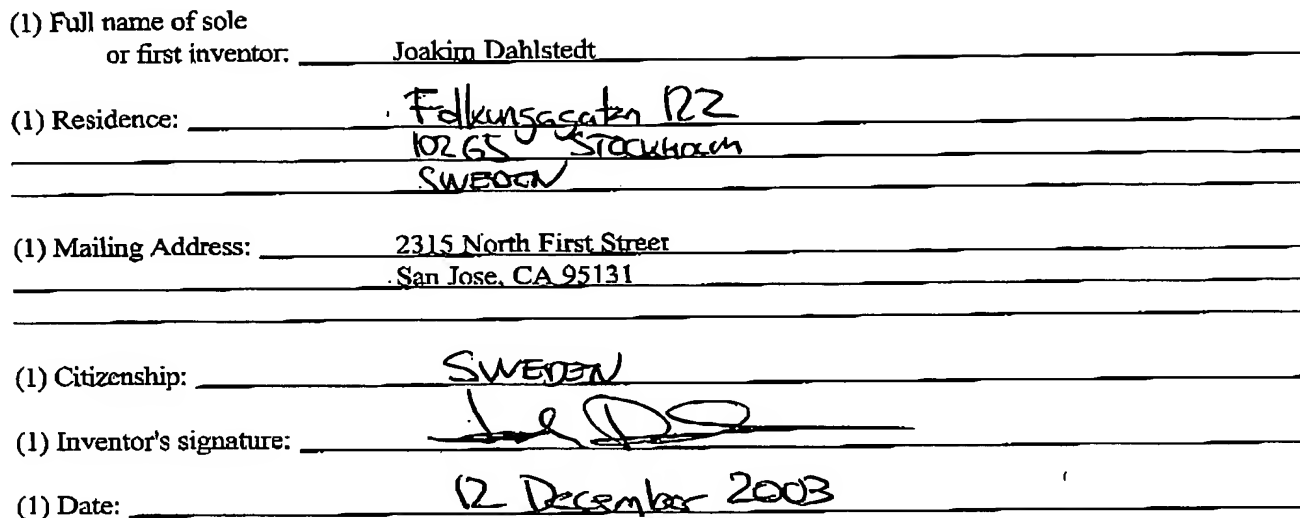 (1) Full name of sole
or first inventor: Joakim Dahlstedt
(1) Residence: Folkungagatan 122
10265 STOCKHOLM
SWEDEN
(1) Mailing Address: 2315 North First Street
San Jose, CA 95131
(1) Citizenship: SWEDEN
(1) Inventor's signature:
(1) Date: 12 December 2003